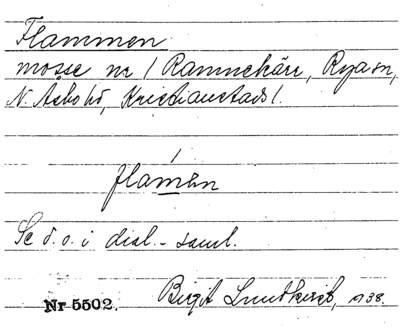 Flammen
mosse nr 1 Rammekärr, Ryasn,
N. Åsbo hd, Kristianstads l.
flamen
Se d. o. i dial.-saml.
Nr 5502. Birgit Lundkvist, 1938.